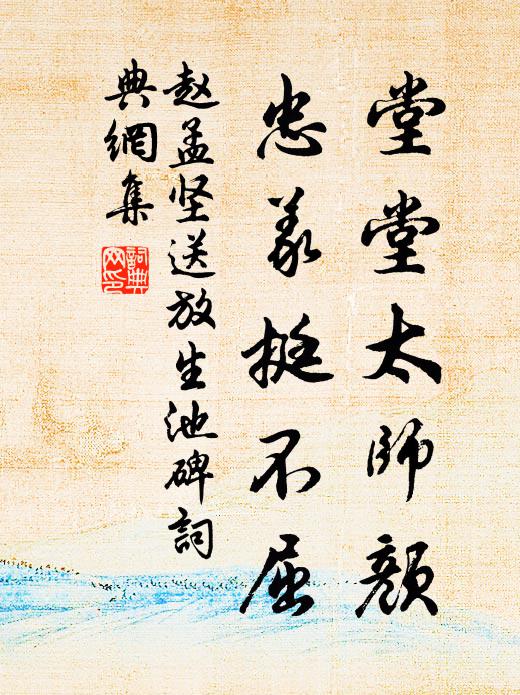 堂堂太师颜
忠义挺不屈
赵孟坚送放生池碑詞
典網集
詞典
网印